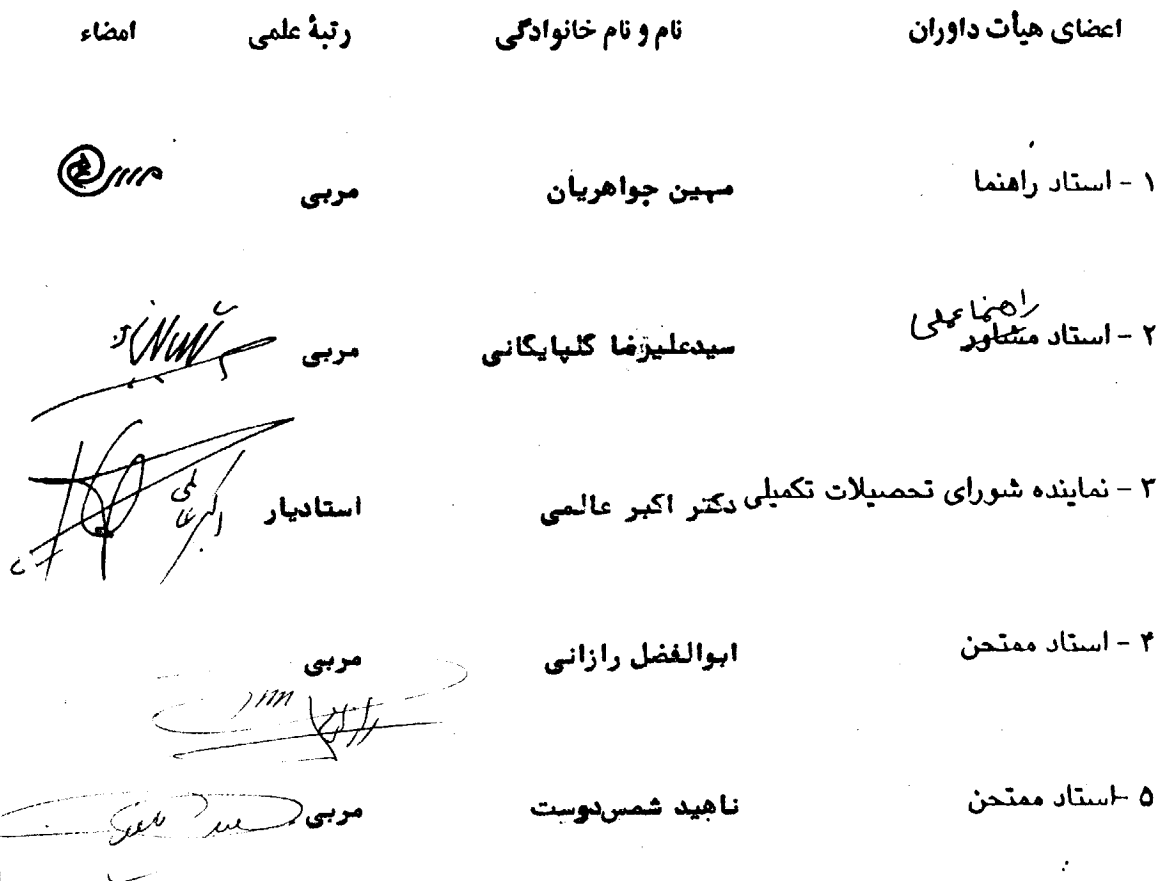 اعضای هیأت داوران نام و نام خانوادگی رتبهٔ علمی امضاء
۱ - استاد راهنما مهین جواهریان مربی
راهنما عملی
۲ - استاد مشاور سیدعلیرضا گلپایگانی مربی
۳ - نماینده شورای تحصیلات تکمیلی دکتر اکبر عالمی استادیار
اکبر عالمی
۴ - استاد ممتحن ابوالفضل رازانی مربی
۵ - استاد ممتحن ناهید شمس‌دوست مربی